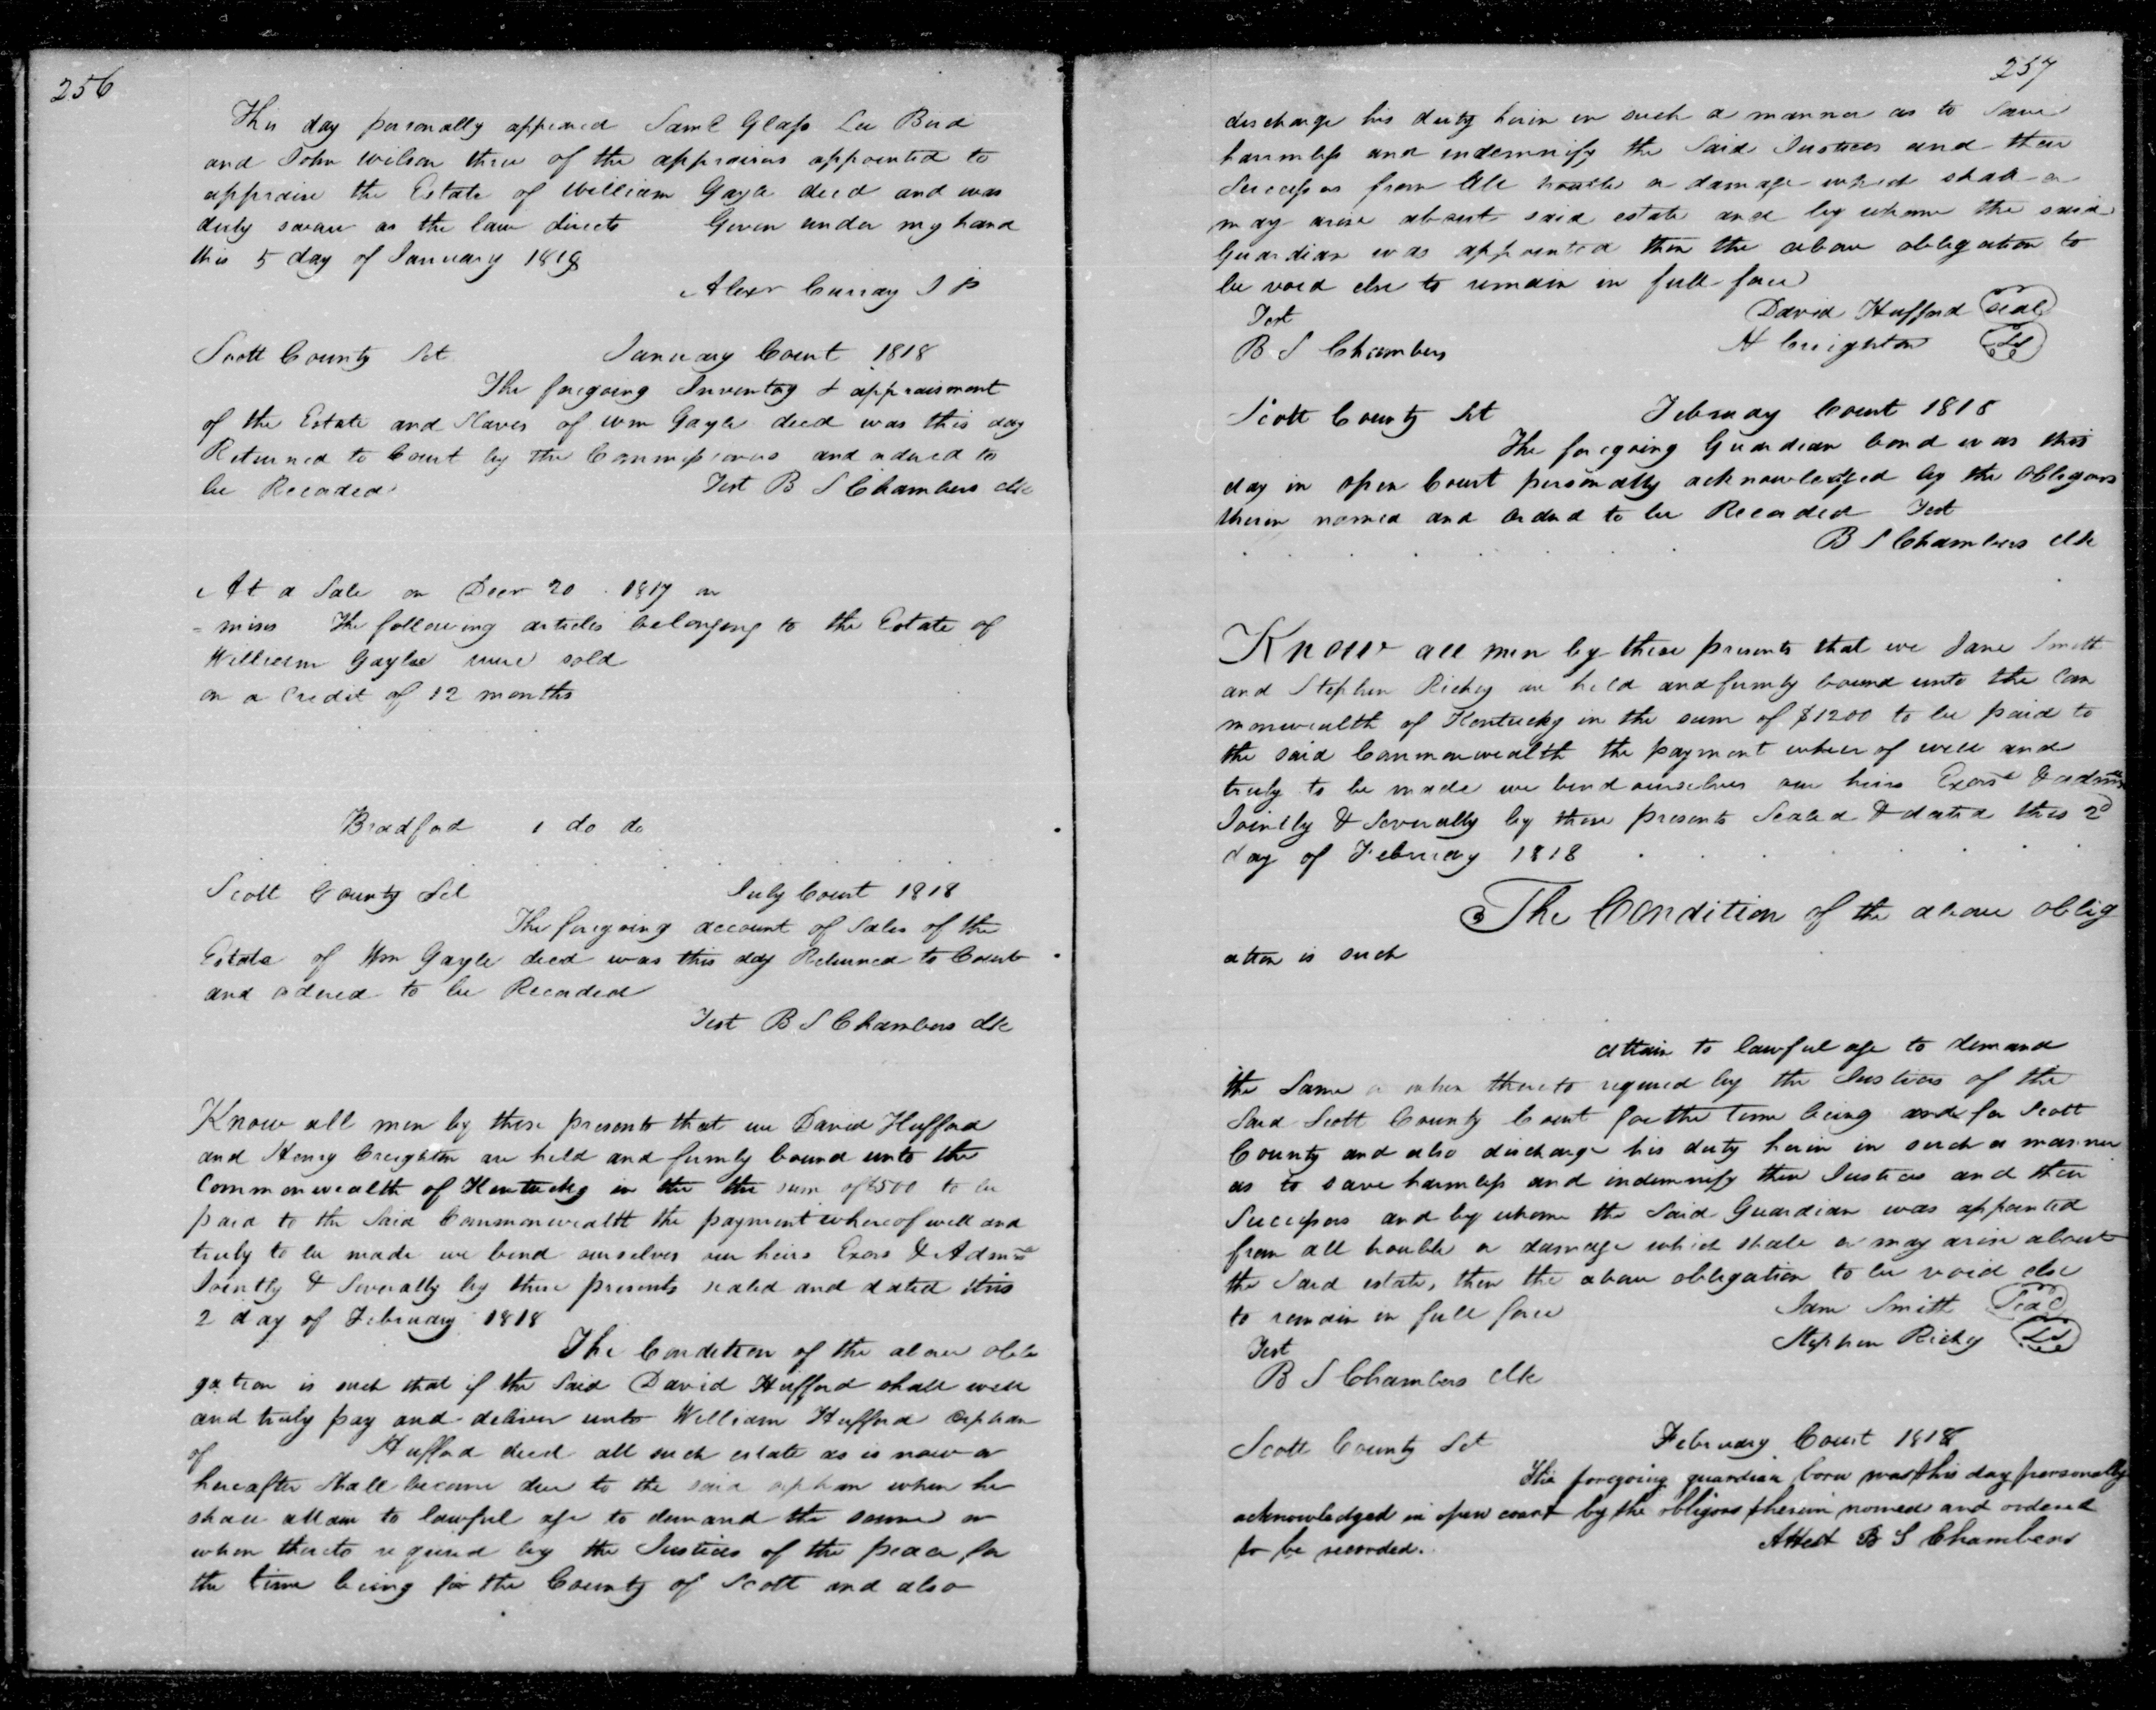 256
This day personally appeared Saml Glass Lee Bird
and John Wilson three of the appraisers appointed to
appraise the Estate of William Gayle decd and was
duly sworn as the law directs Given under my hand
this 5 day of January 1818
Alexr Curray J P
Scott County Sct January Court 1818
The foregoing Inventory & appraisment
of the Estate and Slaves of wm Gayle decd was this day
Returned to Court by the Commissioners and ordered to
be Recorded Test B S Chambers clk
At a Sale on Decr 20 1817 on
= mises The following articles belonging to the Estate of
William Gayle were sold
on a Credit of 12 months
Bradford 1 do do
Scott County Sct July Court 1818
The foregoing account of Sales of the
Estate of Wm Gayle decd was this day Returned to Court
and ordered to be Recorded
Test B S Chambers clk
Know all men by these presents that we David Hufford
and Henry Creighton are held and firmly bound unto the
Commonwealth of Kentucky in the the sum of $500 to be
paid to the Said Commonwealth the payment whereof well and
truly to be made we bend ourselves our heirs Exors & Admrs
Jointly & Severally by these presents sealed and dated this
2 day of February 1818
The Condition of the above obli
gation is such that if the Said David Hufford shall well
and truly pay and deliver unto William Hufford orphan
of Hufford decd all such estate as is now or
hereafter shall become due to the said orphan when he
shall attain to lawful age to demand the same or
when thereto required by the Justices of the peace for
the time being for the County of Scott and also
257
discharge his duty herein in such a manner as to Save
harmless and indemnify the Said Justices and their
Successors from all trouble or damage which shall or
may arise about said estate and by whome the said
Guardian was appointed then the above obligation to
be void else to remain in full force
Test David Hufford seal
B S Chambers H Creighton Ls
Scott County Sct February Court 1818
The foregoing Guardian bond was this
day in open Court personally acknowledged by the Obligors
therein named and Ordered to be Recorded Test
B S Chambers clk
Know all men by these presents that we Jane Smith
and Stephen Richey are held and firmly bound unto the Com
monwealth of Kentucky in the sum of $1200 to be paid to
the said Commonwealth the payment wheer of well and
truly to be made we bend ourselves our heirs Exors & admrs
Jointly & Severally by these presents Sealed & dated this 2d
day of February 1818
The Condition of the above oblig
ation is such
attain to lawful age to demand
the Same or when thereto required by the Justices of the
Said Scott County Court for the time being and for Scott
County and also discharge his duty herein in such a manner
as to save harmless and indemnify then Justices and their
Successors and by whome the Said Guardian was appointed
from all trouble or damage which shall or may arise about
the Said estate, then the above obligation to be void else
to remain in full force Jane Smith Seal
Test Stephen Richy Ls
B S Chambers Clk
Scott County Sct February Court 1818
The foregoing guardian bond was this day personally
acknowledged in open court by the obligors therein named and ordered
to be recorded. Attest B S Chambers